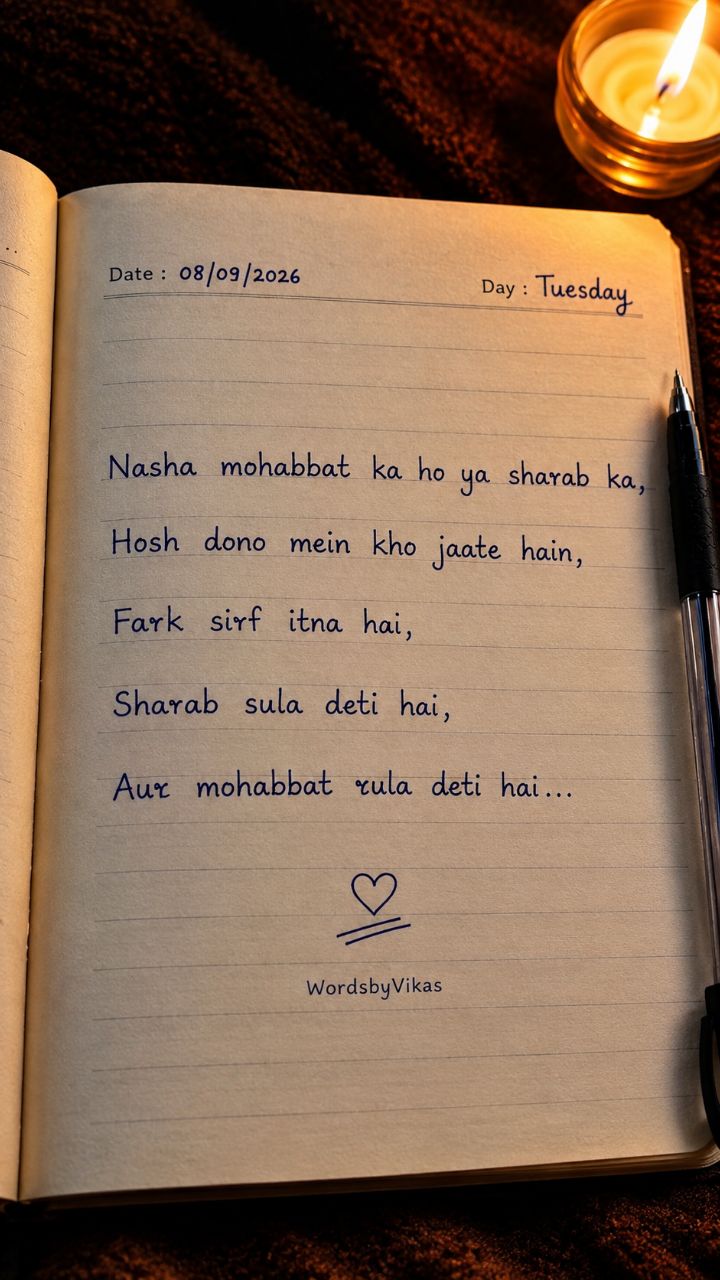 Date : 08/09/2026
Day : Tuesday
Nasha mohabbat ka ho ya sharab ka,
Hosh dono mein kho jaate hain,
Fark sirf itna hai,
Sharab sula deti hai,
Aur mohabbat rula deti hai...
WordsbyVikas